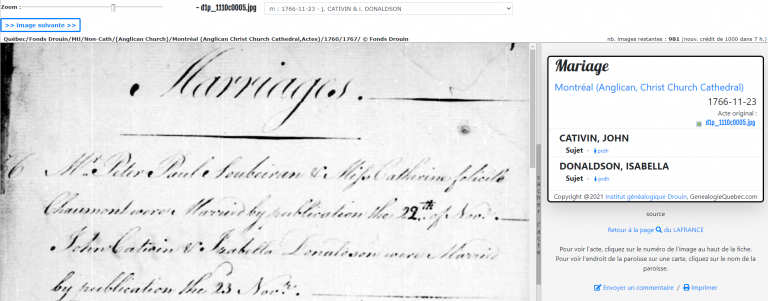 Zoom :
- d1p_1110c0005.jpg
m : 1766-11-23 - J. CATIVIN & I. DONALDSON
>> image suivante >>
Québec/Fonds Drouin/Mtl/Non-Cath/(Anglican Church)/Montréal (Anglican Christ Church Cathedral,Actes)/1760/1767/ © Fonds Drouin
nb. images restantes : 981 (nouv. crédit de 1000 dans 7 h.)
Marriages.
Mr. Peter Paul Soubeiran & Miss Catherine felicité
Chaumont were Married by publication the 22th of Novr.
John Cativin & Isabella Donaldson were Married
by publication the 23 Novr.
cacher l'acte
Mariage
Montréal (Anglican, Christ Church Cathedral)
1766-11-23
Acte original :
d1p_1110c0005.jpg
CATIVIN, JOHN
Sujet - prdh
DONALDSON, ISABELLA
Sujet - prdh
Copyright @2021 Institut généalogique Drouin, GenealogieQuebec.com
source
Retour à la page du LAFRANCE
Pour voir l'acte, cliquez sur le numéro de l'image au haut de la fiche.
Pour voir l'endroit de la paroisse sur une carte, cliquez sur le nom de la
paroisse.
Envoyer un commentaire / Imprimer